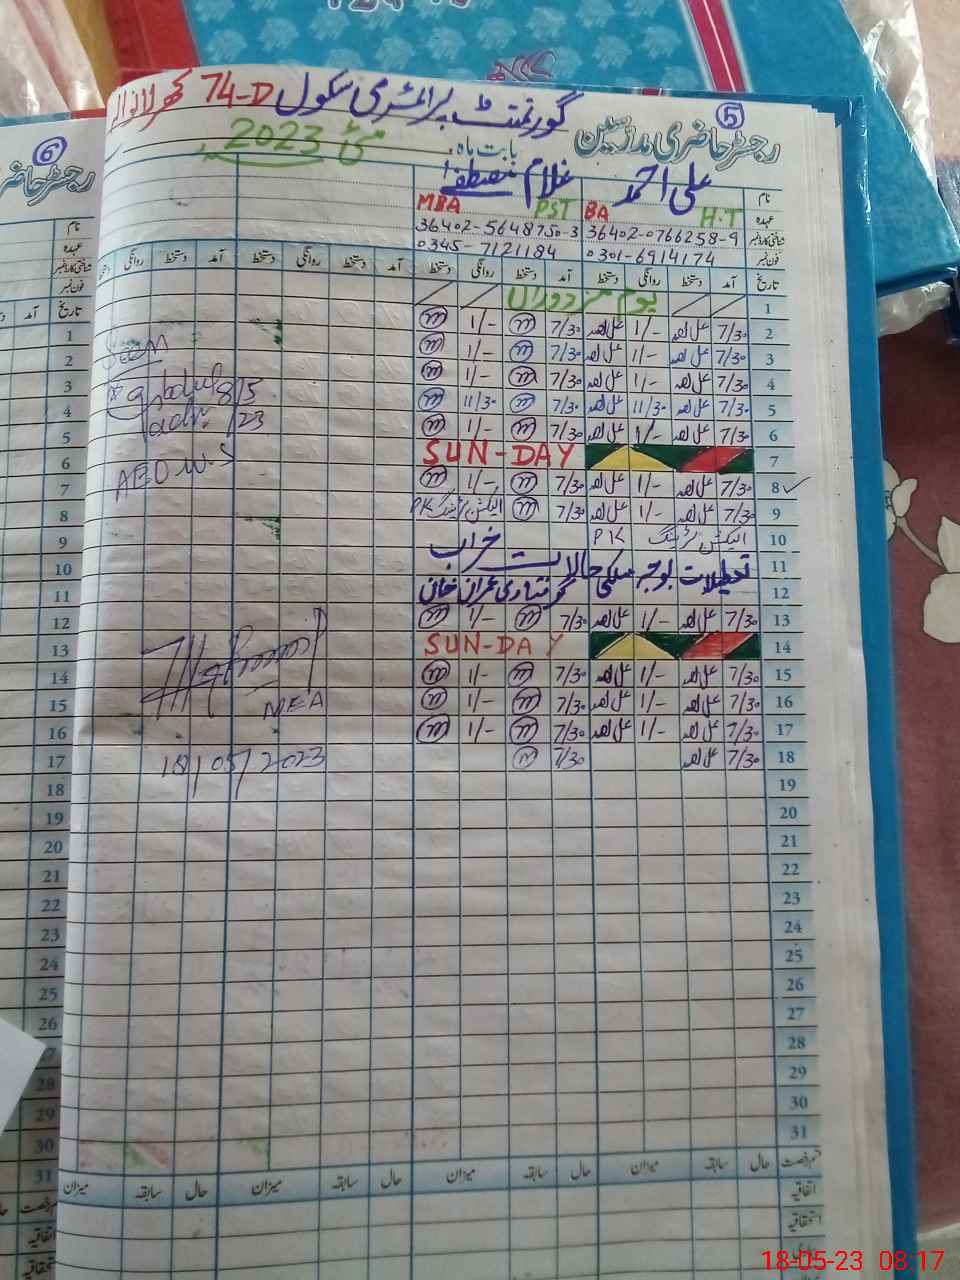 رجسٹر حاضری مدرسین
5
گورنمنٹ پرائمری سکول 74-D
بابت ماہ، مئی 2023ء
نام علی احمد غلام مصطفےٰ
عہدہ H.T BA PST MBA
شناختی کارڈ نمبر 36402-0766258-9 36402-5648750-3
فون نمبر 0301-6914174 0345-7121184
تاریخ آمد دستخط روانگی دستخط آمد دستخط روانگی دستخط آمد دستخط روانگی دستخط آمد دستخط روانگی
1 یوم مزدوراں
2 7/30 علی احمد 1/- علی احمد 7/30 m 1/- m
3 7/30 علی احمد 1/- علی احمد 7/30 m 1/- m
4 7/30 علی احمد 1/- علی احمد 7/30 m 1/- m
5 7/30 علی احمد 11/30 علی احمد 7/30 m 11/30 m
6 7/30 علی احمد 1/- علی احمد 7/30 m 1/- m
7 SUN-DAY
8 7/30 علی احمد 1/- علی احمد 7/30 m 1/- m
9 7/30 علی احمد 1/- علی احمد 7/30 m الیکشن ٹریننگ PK
10 الیکشن ٹریننگ PK
11 تعطیلات بوجہ ملکی حالات خراب
12 گرفتاری عمران خان
13 7/30 علی احمد 1/- علی احمد 7/30 m 1/- m
14 SUN-DAY
15 7/30 علی احمد 1/- علی احمد 7/30 m 1/- m
16 7/30 علی احمد 1/- علی احمد 7/30 m 1/- m
17 7/30 علی احمد 1/- علی احمد 7/30 m 1/- m
18 7/30 علی احمد 7/30 m
19
20
21
22
23
24
25
26
27
28
29
30
31
قسم رخصت حال سابقہ میزان حال سابقہ میزان حال سابقہ میزان حال سابقہ میزان
اتفاقیہ
استحقاقیہ
Seen
8/5/23
AEO W.S
MEA
18/05/2023
6
رجسٹر حاضر
نام
عہدہ
شناختی کارڈ نمبر
فون نمبر
تاریخ آمد
1
2
3
4
5
6
7
8
9
10
11
12
13
14
15
16
17
18
19
20
21
22
23
24
25
26
27
28
29
30
31
قسم رخصت
اتفاقیہ
18-05-23 08:17